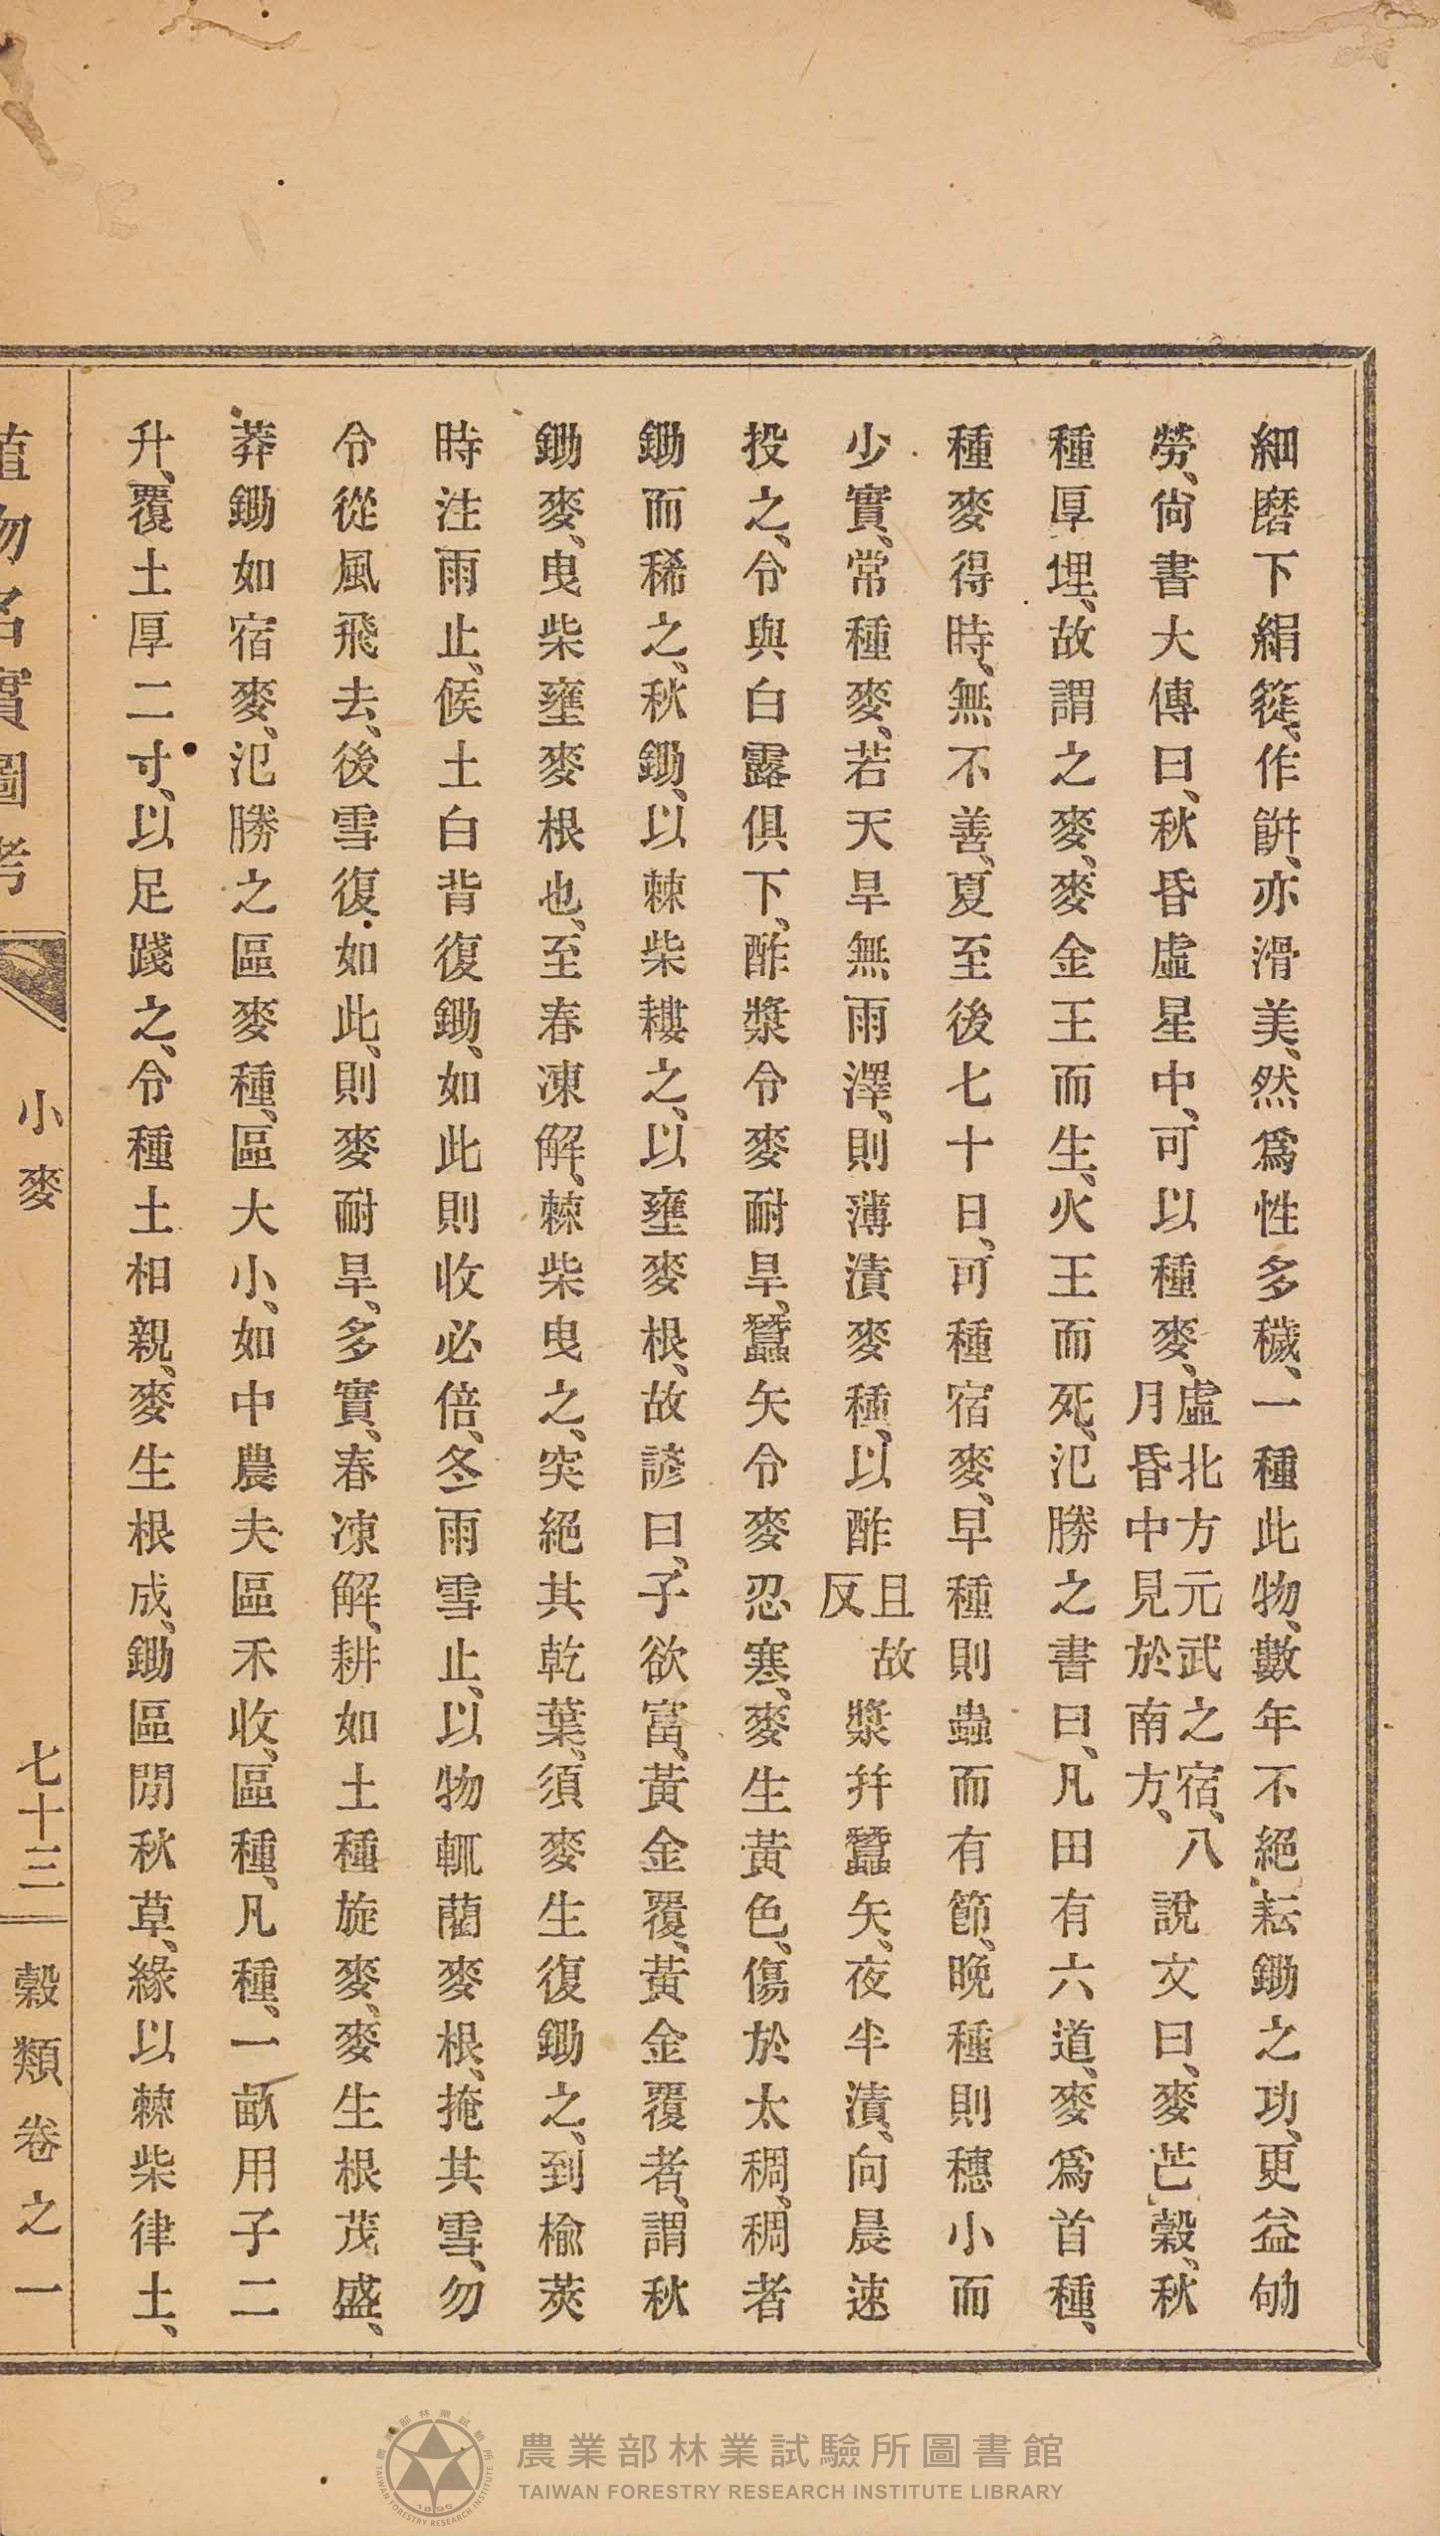 細磨下絹簁、作餠、亦滑美、然爲性多穢、一種此物、數年不絕耘鋤之功、更益劬
勞、尙書大傳曰、秋昏虛星中、可以種麥、虛北方元武之宿、八月昏中見於南方、說文曰、麥芒穀、秋
種厚埋、故謂之麥、麥金王而生、火王而死、氾勝之書曰、凡田有六道、麥爲首種、
種麥得時、無不善、夏至後七十日、可種宿麥、早種則蟲而有節、晚種則穗小而
少實、常種麥、若天旱無雨澤、則薄漬麥種、以酢且故反漿幷蠶矢、夜半漬、向晨速
投之、令與白露俱下、酢漿令麥耐旱、蠶矢令麥忍寒、麥生黃色、傷於太稠、稠者
鋤而稀之、秋鋤、以棘柴耬之、以壅麥根、故諺曰、子欲富、黃金覆、黃金覆者、謂秋
鋤麥、曳柴壅麥根也、至春凍解、棘柴曳之、突絕其乾葉、須麥生復鋤之、到楡莢
時注雨止、候土白背復鋤、如此則收必倍、冬雨雪止、以物輒藺麥根、掩其雪、勿
令從風飛去、後雪復如此、則麥耐旱、多實、春凍解、耕如土種旋麥、麥生根茂盛、
莽鋤如宿麥、氾勝之區麥種、區大小、如中農夫區禾收、區種、凡種、一畝用子二
升、覆土厚二寸、以足踐之、令種土相親、麥生根成、鋤區閒秋草、緣以棘柴律土、
植物名實圖考 小麥 七十三 穀類卷之一
農業部林業試驗所圖書館
TAIWAN FORESTRY RESEARCH INSTITUTE LIBRARY
農業部林業試驗所
TAIWAN FORESTRY RESEARCH INSTITUTE
1896